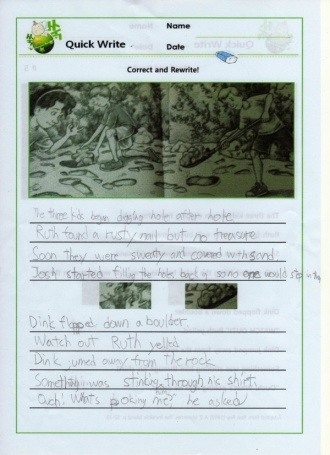 Name
Quick Write
Date
Correct and Rewrite!
The three kids began digging hole after hole.
Ruth found a rusty nail but no treasure.
Soon they were sweaty and covered with sand.
Josh started filling the holes back in so no one would step in
Dink flopped down a boulder.
Watch out Ruth yelled
Dink jumed away from the rock
Something was stinking through his shirt.
Ouch! Whats poking me? he asked